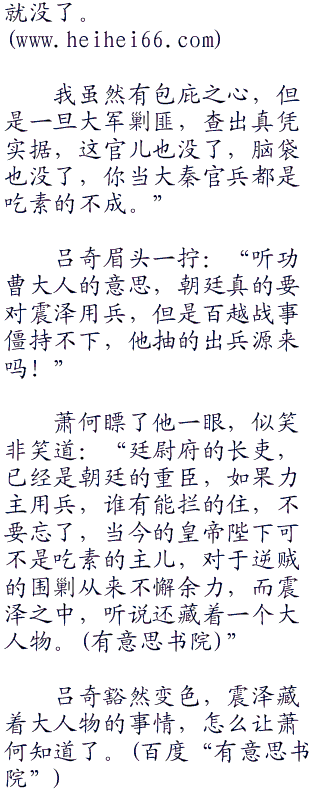 就没了。
(www.heihei66.com)
我虽然有包庇之心，但
是一旦大军剿匪，查出真凭
实据，这官儿也没了，脑袋
也没了，你当大秦官兵都是
吃素的不成。”
吕奇眉头一拧：“听功
曹大人的意思，朝廷真的要
对震泽用兵，但是百越战事
僵持不下，他抽的出兵源来
吗！”
萧何瞟了他一眼，似笑
非笑道：“廷尉府的长吏，
已经是朝廷的重臣，如果力
主用兵，谁有能拦的住，不
要忘了，当今的皇帝陛下可
不是吃素的主儿，对于逆贼
的围剿从来不懈余力，而震
泽之中，听说还藏着一个大
人物。(有意思书院)”
吕奇豁然变色，震泽藏
着大人物的事情，怎么让萧
何知道了。(百度“有意思书
院”)